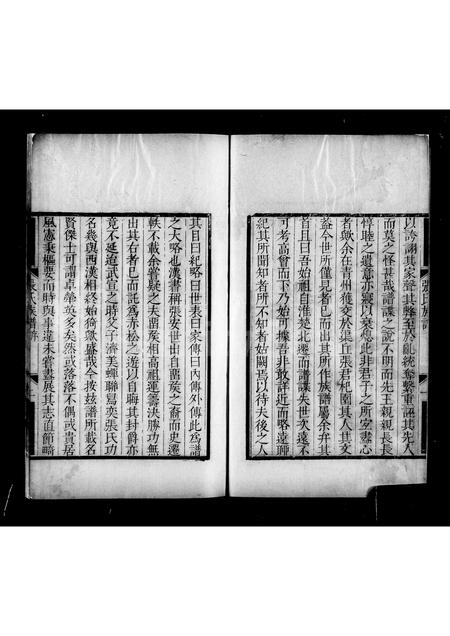 以誇詡其家聲其弊至於亂統
重誣其先人
而莫之怪甚哉譜諜之說不明而先王親親長長
惇睦之遺意亦寢以衰息此非君子之所宜盡心
者歟余在青州獲交於渠丘張君杞園其人其文
蓋今世所僅見者已而出其所作族譜屬余弁其
首且曰吾始祖自淮楚北遷而譜諜失世次遠不
可考高曾而下乃始可據吾非敢詳近而略遠聊
紀其所聞知者所不知者姑闕焉以待夫後之人
其目曰紀略曰世表曰家傳曰內傳外傳此為譜
之大略也漢書稱張安世出自留矦之裔而史遷
軼不載余嘗疑之夫留矦相高祖運籌決勝功無
出其右者已而託為赤松之遊以自晦其封爵亦
竟不延迨武宣之時父子濟美蟬聯舄奕張氏功
名幾與西漢相終始猗歟盛哉今按茲譜所載名
賢傑士可謂卓犖英多矣然或落落不偶或貴居
風憲秉樞要而時與事違未嘗盡展其志直節畸
張氏族譜
張氏族譜 序